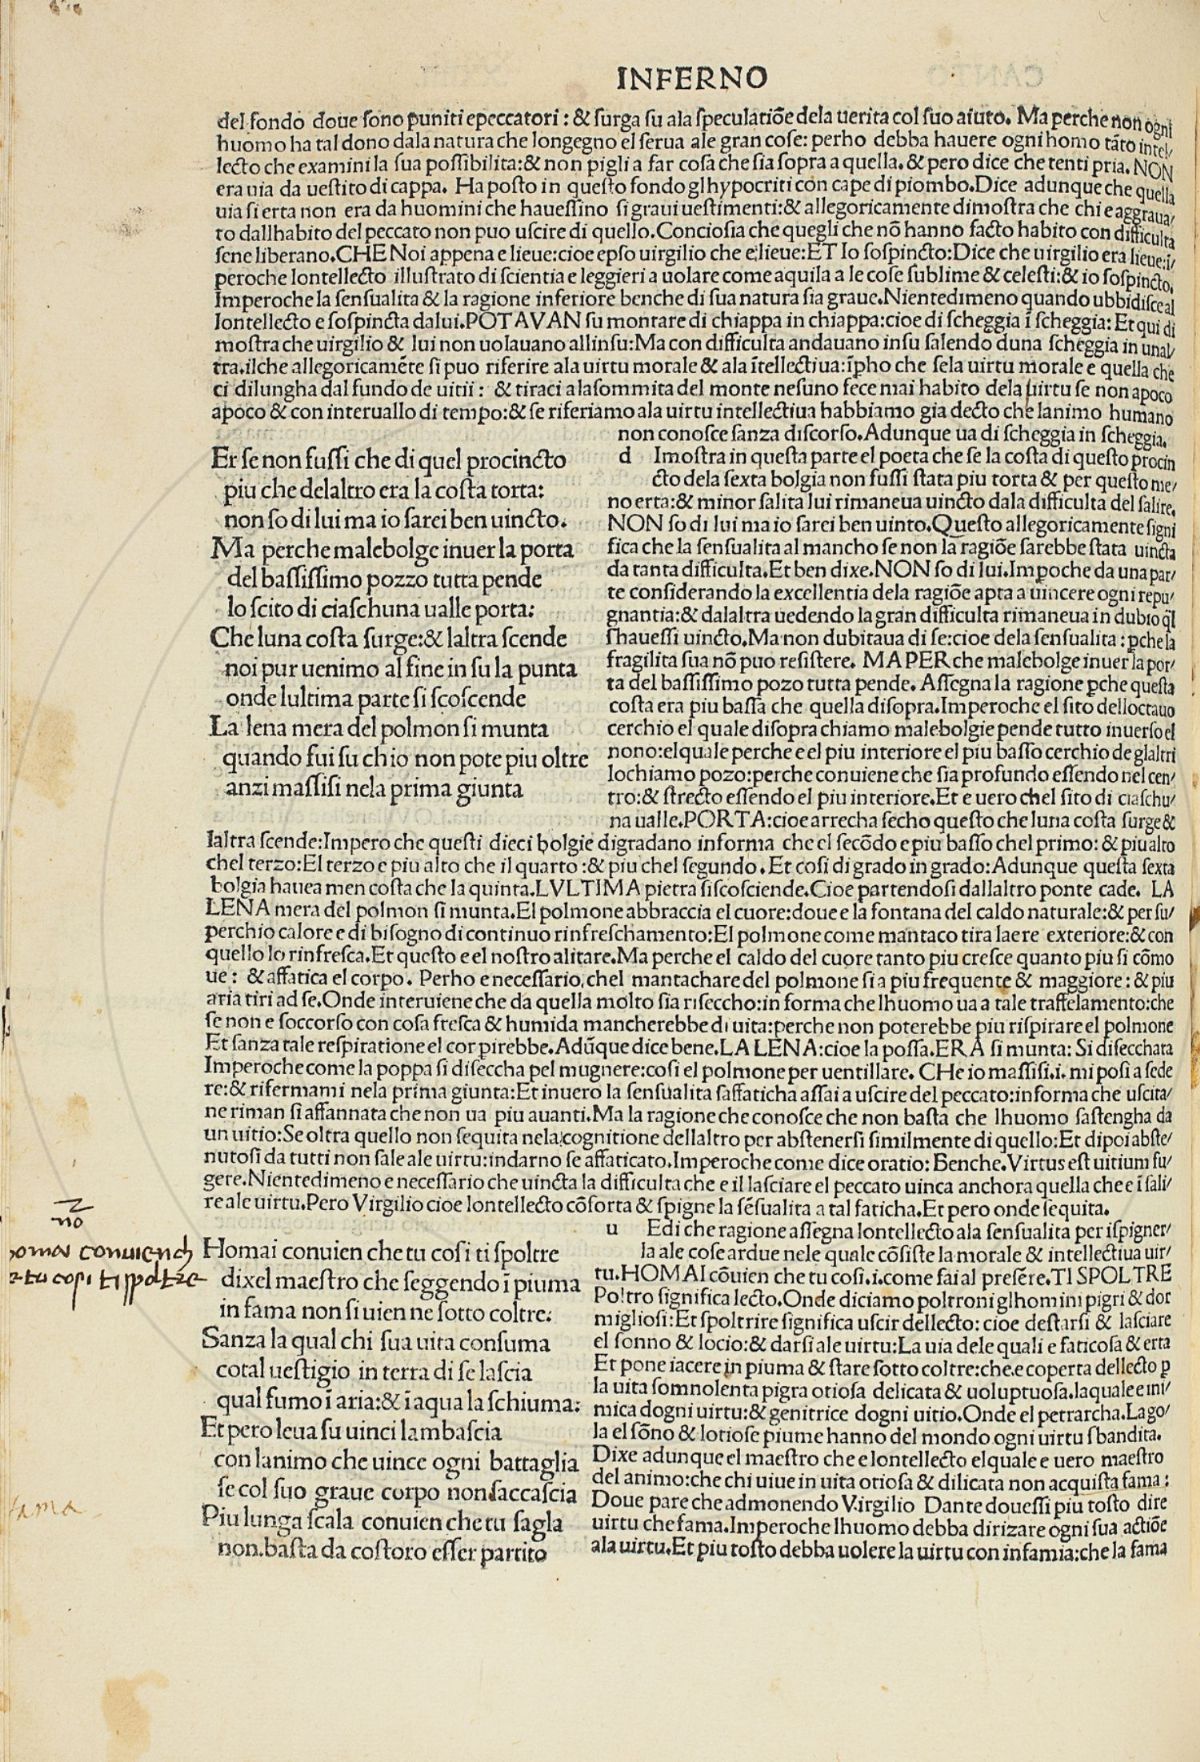 INFERNO
del fondo doue sono puniti epeccatori : & surga su ala speculatiõe dela uerita col suo aiuto. Ma perche non ogni
huomo ha tal dono dala natura che longegno el serua ale gran cose: perho debba hauere ogni homo tãto intel/
lecto che examini la sua possibilita:& non pigli a far cosa che sia sopra a quella. & pero dice che tenti pria. NON
era uia da uestito di cappa. Ha posto in questo fondo glhypocriti con cape di piombo. Dice adunque che quella
uia si erta non era da huomini che hauessino si graui uestimenti:& allegoricamente dimostra che chi e aggraua/
to dallhabito del peccato non puo uscire di quello. Conciosia che quegli che nõ hanno facto habito con difficulta
sene liberano. CHE Noi appena e lieue: cioe epso uirgilio che e lieue: ET Io sospincto: Dice che uirgilio era lieue: i/
peroche lontellecto illustrato di scientia e leggieri a uolare come aquila a le cose sublime & celesti: & io sospincto.
Imperoche la sensualita & la ragione inferiore benche di sua natura sia graue. Nientedimeno quando ubbidisce al
lontellecto e sospincta dalui. POTAVAN su montare di chiappa in chiappa: cioe di scheggia ĩ scheggia: Et qui di
mostra che uirgilio & lui non uolauano allinsu: Ma con difficulta andauano insu salendo duna scheggia in unal/
tra. ilche allegoricamẽte si puo riferire ala uirtu morale & ala ĩtellectiua: ĩpho che se la uirtu morale e quella che
ci dilungha dal fundo de uitii : & tiraci alasommita del monte nesuno fece mai habito dela uirtu se non apoco
apoco & con interuallo di tempo: & se riferiamo ala uirtu intellectiua habbiamo gia decto che lanimo humano
non conosce sanza discorso. Adunque ua di scheggia in scheggia.
Et se non fussi che di quel procincto
piu che delaltro era la costa torta:
non so di lui ma io sarei ben uincto.
Ma perche malebolge inuer la porta
del bassissimo pozzo tutta pende
lo scito di ciaschuna ualle porta:
Che luna costa surge: & laltra scende
noi pur uenimo al fine in su la punta
onde lultima parte si scoscende
La lena mera del polmon si munta
quando fui su ch io non pote piu oltre
anzi massisi nela prima giunta
d Imostra in questa parte el poeta che se la costa di questo procin
cto dela sexta bolgia non fussi stata piu torta & per questo me/
no erta: & minor salita lui rimaneua uincto dala difficulta del salire.
NON so di lui ma io sarei ben uinto. Questo allegoricamente signi
fica che la sensualita al mancho se non la ragiõe sarebbe stata uincta
da tanta difficulta. Et ben dixe. NON so di lui. Impoche da una par/
te considerando la excellentia dela ragiõe apta a uincere ogni repu/
gnantia: & dalaltra uedendo la gran difficulta rimaneua in dubio ql
shauessi uincto. Ma non dubitaua di se: cioe dela sensualita : pche la
fragilita sua nõ puo resistere. MA PER che malebolge inuer la por/
ta del bassissimo pozo tutta pende. Assegna la ragione pche questa
costa era piu bassa che quella disopra. Imperoche el sito delloctauo
cerchio el quale disopra chiamo malebolgie pende tutto inuerso el
nono: elquale perche e el piu interiore el piu basso cerchio de glaltri
lochiamo pozo: perche conuiene che sia profundo essendo nel cen/
tro: & strecto essendo el piu interiore. Et e uero chel sito di ciaschu/
na ualle. PORTA: cioe arrecha secho questo che luna costa surge &
laltra scende: Impero che questi dieci bolgie digradano informa che el secõdo e piu basso chel primo: & piu alto
chel terzo: El terzo e piu alto che il quarto : & piu chel segundo. Et cosi di grado in grado: Adunque questa sexta
bolgia hauea men costa che la quinta. LVLTIMA pietra si scosciende. Cioe partendosi dallaltro ponte cade. LA
LENA mera del polmon si munta. El polmone abbraccia el cuore: doue e la fontana del caldo naturale: & per su/
perchio calore e di bisogno di continuo rinfreschamento: El polmone come mantaco tira laere exteriore: & con
quello lo rinfresca. Et questo e el nostro alitare. Ma perche el caldo del cuore tanto piu cresce quanto piu si cõmo
ue : & affatica el corpo. Perho e necessario, chel mantachare del polmone si a piu frequente & maggiore : & piu
aria tiri ad se. Onde interuiene che da quella molto sia riseccho: in forma che lhuomo ua a tale traffelamento: che
se non e soccorso con cosa fresca & humida mancherebbe di uita: perche non poterebbe piu rispirare el polmone
Et sanza tale respiratione el cor pirebbe. Adũque dice bene. LA LENA: cioe la possa. ERA si munta: Si disecchata
Imperoche come la poppa si diseccha pel mugnere: cosi el polmone per uentillare. CHe io massisi. i. mi posi a sede
re: & rifermami nela prima giunta: Et inuero la sensualita saffaticha assai a uscire del peccato: informa che uscita/
ne riman si affannata che non ua piu auanti. Ma la ragione che conosce che non basta che lhuomo sastengha da
un uitio: Se oltra quello non sequita nela cognitione dellaltro per abstenersi similmente di quello: Et dipoi abste/
nutosi da tutti non sale ale uirtu: indarno se affaticato. Imperoche come dice oratio: Benche. Virtus est uitium fu/
gere. Nientedimeno e necessario che uincta la difficulta che e il lasciare el peccato uinca anchora quella che e ĩ sali/
re ale uirtu. Pero Virgilio cioe lontellecto cõforta & spigne la sẽsualita a tal faticha. Et pero onde sequita.
no
homai conviench
e tu cosi ti spoltre
fama
Homai conuien che tu cosi ti spoltre
dixel maestro che seggendo ĩ piuma
in fama non si uien ne sotto coltre:
Sanza la qual chi sua uita consuma
cotal uestigio in terra di se lascia
qual fumo ĩ aria: & ĩ aqua la schiuma:
Et pero leua su uinci lambascia
con lanimo che uince ogni battaglia
se col suo graue corpo non saccascia
Piu lunga scala conuien che tu sagla
non.basta da costoro esser partito
u Edi che ragione assegna lontellecto ala sensualita per ispigner/
la ale cose ardue nele quale cõsiste la morale & intellectiua uir/
tu. HOMAI cõuien che tu cosi. i. come fai al presẽte. TI SPOLTRE
Poltro significa lecto. Onde diciamo poltroni glhomini pigri & dor
migliosi: Et spoltrire significa uscir dellecto: cioe destarsi & lasciare
el sonno & locio: & darsi ale uirtu: La uia dele quali e faticosa & erta
Et pone iacere in piuma & stare sotto coltre: che. e coperta dellecto p
la uita somnolenta pigra otiosa delicata & uoluptuosa. laquale e ini/
mica dogni uirtu: & genitrice dogni uitio. Onde el petrarcha. La go/
la el sõno & lotiose piume hanno del mondo ogni uirtu sbandita.
Dixe adunque el maestro che e lontellecto elquale e uero maestro
del animo: che chi uiue in uita otiosa & dilicata non acquista fama :
Doue pare che admonendo Virgilio Dante douessi piu tosto dire
uirtu che fama. Imperoche lhuomo debba dirizare ogni sua actiõe
ala uirtu. Et piu tosto debba uolere la uirtu con infamia: che la fama